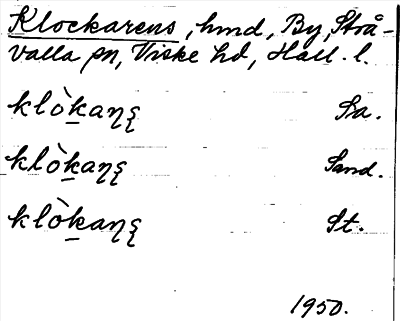 Klockarens, hmd, By, Strå-
valla sn, Viske hd, Hall. l.
klò̠kaꞃȩ Sa.
klò̠kaꞃȩ Sand.
klò̠kaꞃȩ St.
1950.